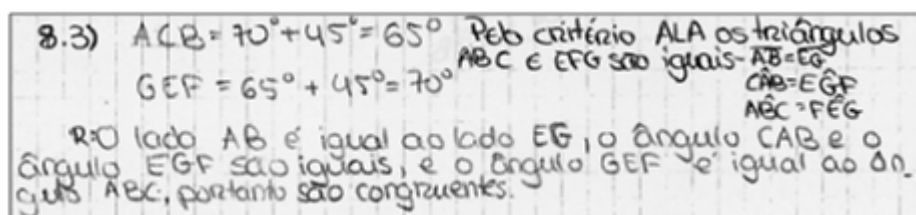 8.3) ACB = 70° + 45° = 65° Pelo critério ALA os triângulos
ABC e EFG são iguais - AB = EG
GEF = 65° + 45° = 70° CÂB = EĜF
AB̂C = FÊG
R: O lado AB é igual ao lado EG, o ângulo CAB e o
ângulo EGF são iguais, e o ângulo GEF é igual ao ân_
gulo ABC, portanto são congruentes.